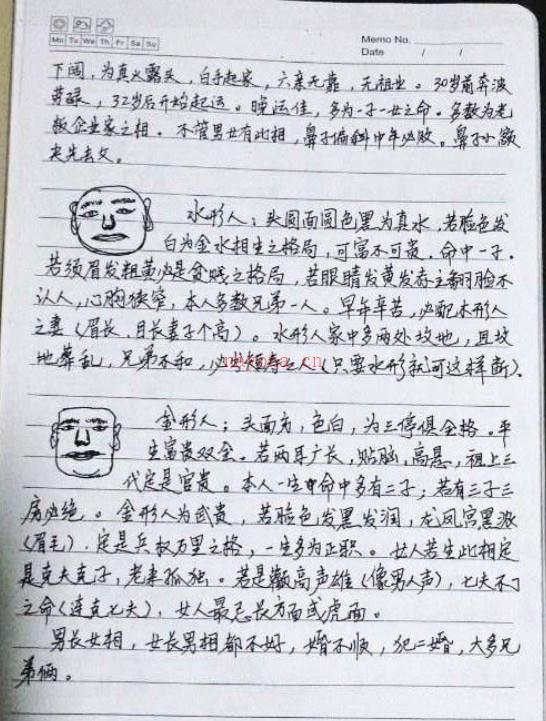 Mo Tu We Th Fr Sa Su
Memo No.
Date / /
下阔，为真火露头，白手起家，六亲无靠，无祖业。30岁前奔波
劳碌，32岁后开始起运。晚运佳，多为一子一女之命。多数为老
板企业家之相。不管男女有此相，鼻子偏斜中年必败。鼻子小额
尖先去父。
水形人；头圆面圆色黑为真水，若脸色发
白为金水相生之格局，可富不可贵，命中一子。
若须眉发粗黄必是贫贱之格局，若眼睛发黄发赤主翻脸不
认人，心胸狭窄，本人多数兄弟一人。早年辛苦，必配木形人
之妻（眉长，目长妻子个高）。水形人家中多两处坟地，且坟
地葬乱，兄弟不和，必出短寿之人（只要水形就可这样断）。
金形人；头面方，色白，为三停俱全格。平
生富贵双全。若两耳广长，贴脑，高悬，祖上三
代定是官贵。本人一生命中多有二子，若有三子三
房必绝。金形人为武贵，若脸色发黑发润，龙凤宫黑浓
（眉毛），定是兵权万里之格，一生多为正职。女人若生此相定
是克夫克子，老来孤独。若是颧高声雄（像男人声），七夫不了
之命（连克七夫），女人最忌长方面或虎面。
男长女相，女长男相都不好，婚不顺，犯二婚，大多兄
弟俩。